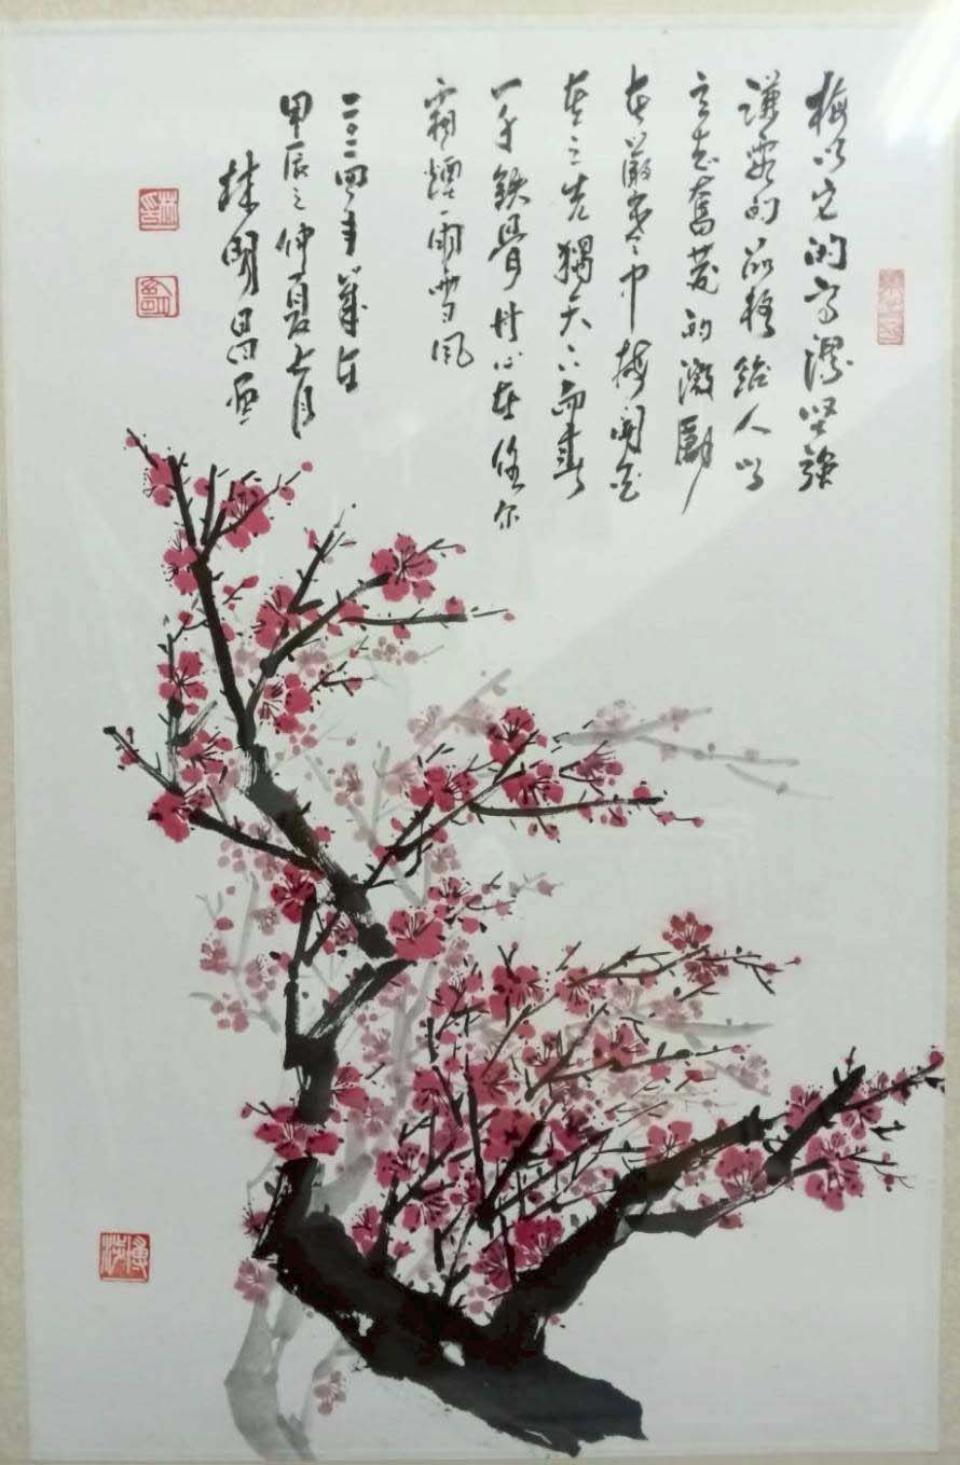 梅以它的高潔堅強
謙虛的品格給人以
立志奮發的激勵
在嚴寒中梅開百
花之先獨天下而春
一身鐵骨丹心在任尔
霜煙雨雪風
二〇二四年歲在
甲辰之仲夏七月
林明昌画